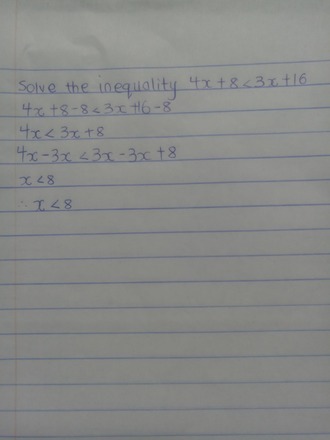 Solve the inequality 4x + 8 < 3x + 16
4x + 8 - 8 < 3x + 16 - 8
4x < 3x + 8
4x - 3x < 3x - 3x + 8
x < 8
∴ x < 8